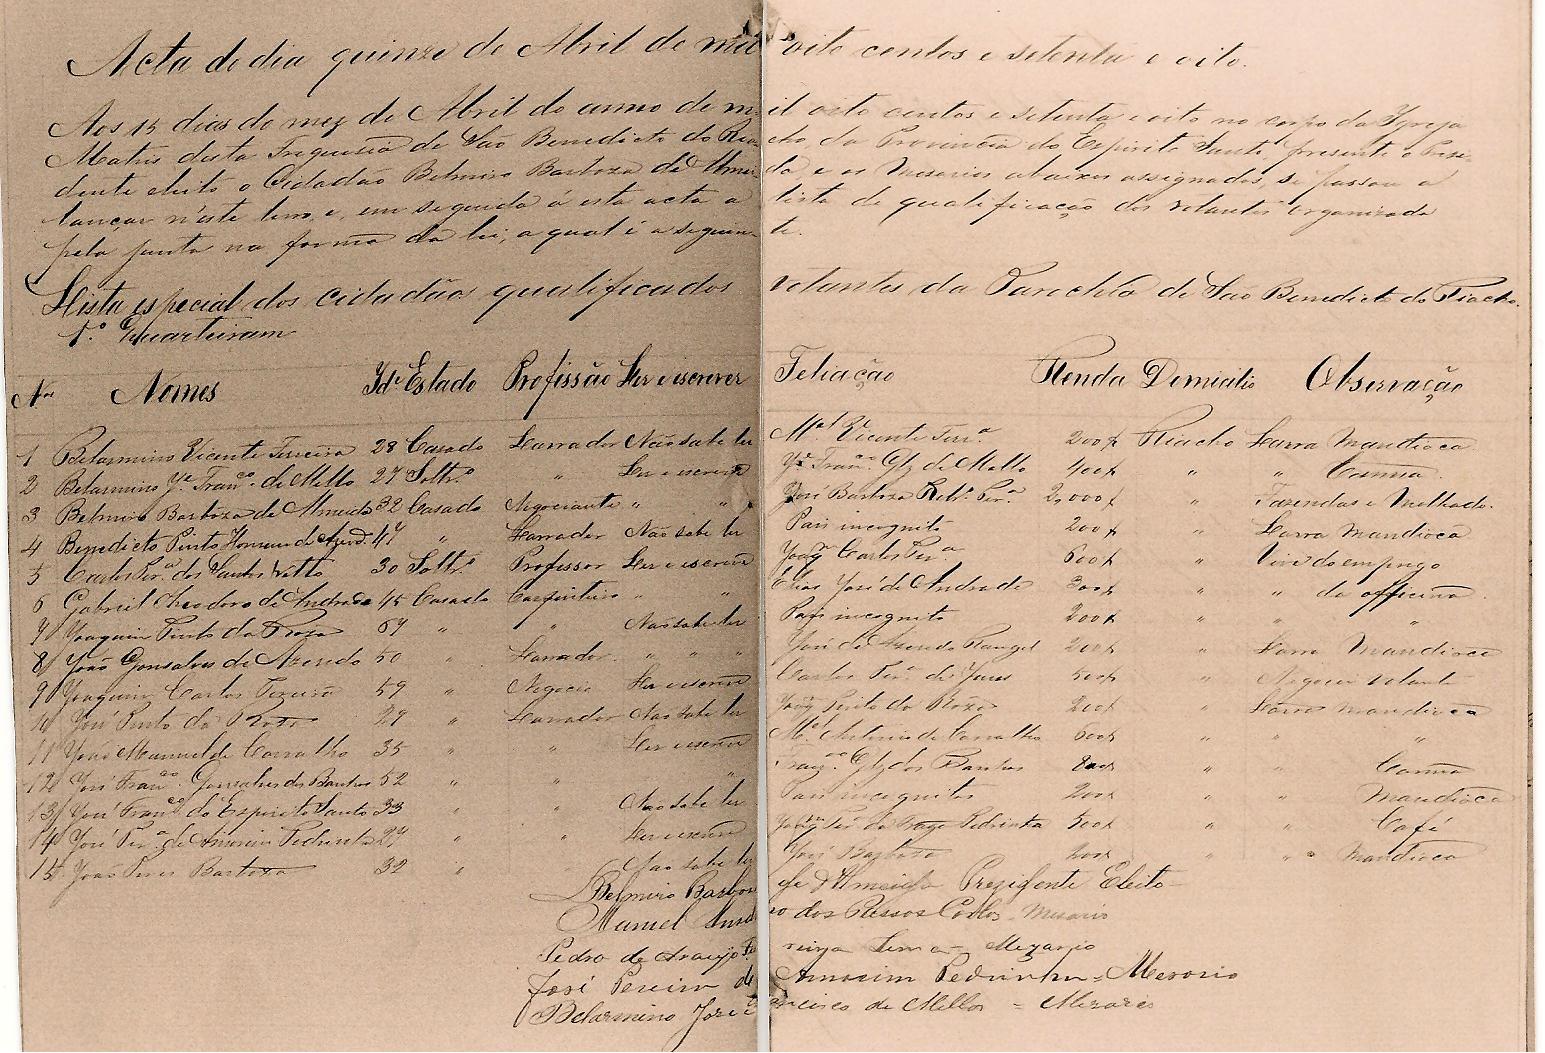 Acta do dia quinze de Abril de mil oito centos e setenta e oito.
Aos 15 dias do mez de Abril do anno de mil oito centos e setenta e oito no corpo da Ygreja
Matris desta Freguesia de São Benedicto do Riacho, da Provincia do Espirito Santo, presente o Presi-
dente eleito o Cidadão Belmiro Barboza de Almeida, e os Mesarios abaixo assignados, se passou a
lançar n'este livro, e, em seguida á esta acta a lista de qualificação dos votantes organizada
pela junta na forma da lei, a qual é a seguinte.
Llista especial dos cidadãos qualificados votantes da Parochia de São Benedicto do Riacho.
1.º Quarteiram
Nos Nomes Ide Estado Profissão Ler e escrever Feliação Renda Domicilio Observação
1 Belarmino Vicente Ferreira 28 Casado Lavrador Não sabe ler Mel Vicente Ferra 200$ Riacho Lavra Mandioca
2 Belarmino Je Franco de Mello 27 Soltro " Ler e escrever Franco Glz de Mello 400$ " " Canna
3 Belmiro Barboza de Almeida 32 Casado Negociante " " José Barboza 2,000$ " Fazendas e Molhado.
4 Benedicto Pinto Homem de Azevdo 47 " Lavrador Não sabe ler Pais incognito 200$ " Lavra Mandioca
5 Carlos Fera dos Santos 30 Soltro Professor Ler e escrever Joaqm Carlos Fera 600$ " Vive do emprego
6 Gabriel Theodoro de Andrade 45 Casado Carpinteiro " " Elias José de Andrade 300$ " " da officina
7 Joaquim Pinto da Roza 69 " " Não sabe ler Pais incognito 200$ " " "
8 João Gonsalves de Azeredo 50 " Lavrador " " " José de Azeredo Rangel 200$ " Lavra Mandioca
9 Joaquim Carlos 59 " Negocio Ler e escrever Carlos 500$ " Negocio volante
10 José Pinto da Roza 29 " Lavrador Não sabe ler Joaqm Pinto da Roza 200$ " Lavra mandioca
11 João Manuel de Carvalho 35 " " Ler e escrever Mel Antonio de Carvalho 600$ " " "
12 José Franco Gonsalves dos Santos 52 " " Franco Glz dos Santos " " Canna
13 José Franco do Espirito Santo 33 " " Não sabe ler Pais incognitos 200$ " " Mandioca
14 José Pera de Amorim Pedrinha 29 " " Ler e escrever Pedrinha 500$ " " Café
15 João Barboza 32 " Não sabe ler José Barboza 200$ " " Mandioca
Belmiro Barboza d'Almeida Prezidente Eleito
Manuel dos Passos Mesario
Pedro de Araujo Lima – Mezario
José Pereira de Amorim Pedrinha = Mesario
Belarmino José Francisco de Mello = Mezario